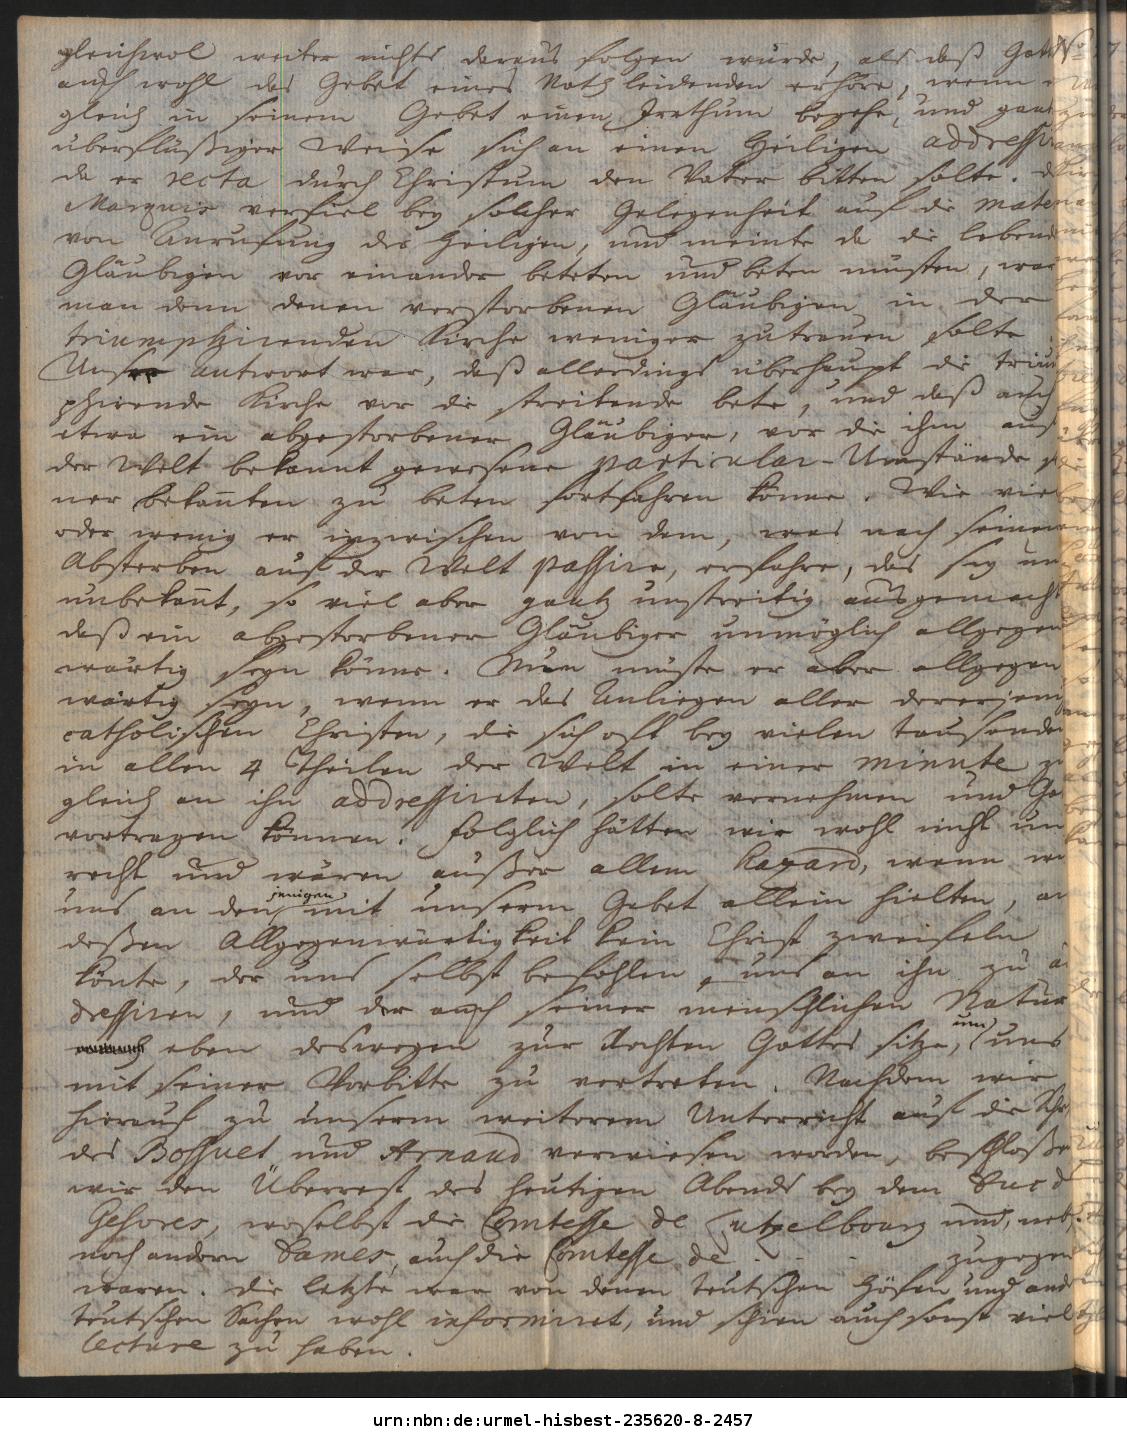 gleichwol weiter nichts daraus folgen würde, als daß Gott
auch wohl das Gebet eines Nothleidenden erhöre, wenn er
gleich in seinem Gebet einen Irrthum begehe, und gantz
überflüßiger Weise sich an einen Heiligen addressire
da er recta durch Christum den Vater bitten solte. der
Marquis verfiel bey solcher Gelegenheit auf die mater
von Anrufung der Heiligen, und meinte da die lebend
Gläubigen vor einander beteten und beten müsten, war
man denn denen verstorbenen Gläubigen in der
triumphirenden Kirche weniger zutrauen solte
Unser antwort war, daß allerdings überhaupt die trium
phirende Kirche vor die streitende bete, und daß auch
etwa ein abgestorbener Gläubiger, vor die ihm auf
der Welt bekannt gewesene particular-Umstände sei
ner bekañten zu beten fortfahren könne. Wie viel
oder wenig er inzwischen von dem, was nach seinem
Absterben auf der Welt passire, erfahre, das sey un
unbekañt, so viel aber gantz unstreitig ausgemacht
daß ein abgestorbener Gläubiger unmöglich allgegen
wärtig seyn könne. Nun müste er aber allgegen
wärtig seyn, wenn er das Anliegen aller dererjeni
catholischen Christen, die sich oft bey vielen tausenden
in allen 4 Theilen der Welt in einer minute zu
gleich an ihn addressirten, solte vernehmen und Go
vortragen können. folglich hätten wir wohl nicht un
recht und wären außer allem hazard, wenn wi
uns an den jenigen mit unserm Gebet allein hielten, an
deßen Allgegenwärtigkeit kein Christ zweifeln
könte, der uns selbst befohlen, uns an ihn zu ad
dressiren, und der auch seiner menschlichen Natur
eben deswegen zur Rechten Gottes sitze, um uns
mit seiner Vorbitte zu vertreten. Nachdem wir
hierauf zu unserm weiterem Unterricht auf die Schr
des Bossuet und Arnaud verwiesen worden, beschloße
wir den Überrest des heutigen Abends bey dem Duc d
Gesvres, woselbst die Comtesse de Lutzelbourg und, neb
noch andern Dames, auch die Comtesse de - - - zugegen
waren. die letzte war von denen teutschen Höfen und and
teutschen Sachen wohl informiret, und schien auch sonst viel
lecture zu haben.
urn:nbn:de:urmel-hisbest-235620-8-2457